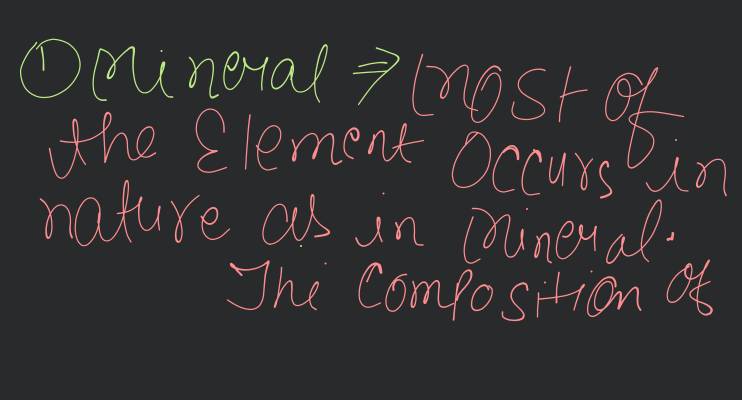 ① Mineral ⇒ Most of
the Element Occurs in
nature as in Mineral.
The Composition of